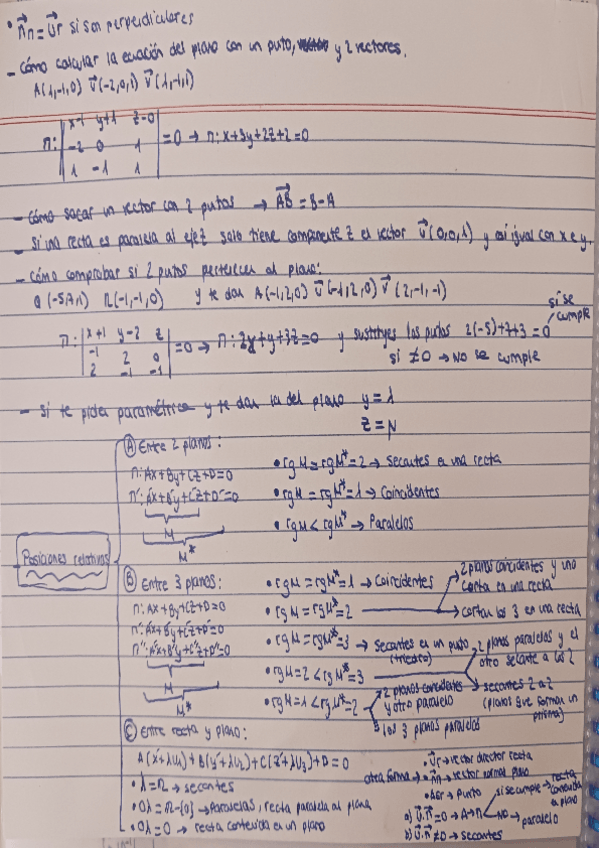 • n⃗n = u⃗r si son perpendiculares
- Cómo calcular la ecuación del plano con un puto, y 2 vectores.
A(1,-1,0) u⃗(-2,0,1) v⃗(1,-1,1)
π: | x-1 y+1 z-0 |
| -2 0 1 | =0 → π: x+3y+2z+2=0
| 1 -1 1 |
- Cómo sacar un vector con 2 putos → AB⃗ = B-A
- Si una recta es paralela al eje z solo tiene componente z el vector u⃗(0,0,1) y así igual con x e y.
- Cómo comprobar si 2 putos pertenecen al plano:
Q(-5,7,1) R(-1,-1,0) y te dan A(-1,2,0) u⃗(-1,2,0) v⃗(2,-1,-1)
π: | x+1 y-2 z |
| -1 2 0 | =0 → π: 2x+y+3z=0 y sustituyes los putos 2(-5)+7+3=0 sí se cumple
| 2 -1 -1 | si ≠0 → No se cumple
- Si te piden paramétrica y te dan la del plano y=λ
z=μ
Posiciones relativas
Ⓐ Entre 2 planos:
π: Ax+By+Cz+D=0
π': A'x+B'y+C'z+D'=0
M
M*
• rgM=rgM*=2 → Secantes en una recta
• rgM=rgM*=1 → Coincidentes
• rgM<rgM* → Paralelos
Ⓑ Entre 3 planos:
π: Ax+By+Cz+D=0
π': A'x+B'y+C'z+D'=0
π'': A''x+B''y+C''z+D''=0
M
M*
• rgM=rgM*=1 → Coincidentes
• rgM=rgM*=2 → 2 planos coincidentes y uno corta en una recta
→ cortan los 3 en una recta
• rgM=rgM*=3 → secantes en un puto (triedro)
• rgM=2<rgM*=3 → 2 planos paralelos y el otro secante a los 2
→ secantes 2 a 2 (planos que forman un prisma)
• rgM=1<rgM*=2 → 2 planos coincidentes y otro paralelo
→ los 3 planos paralelos
Ⓒ Entre recta y plano:
A(x+λu1)+B(y+λu2)+C(z+λu3)+D=0
• λ=R → secantes
• 0λ=R-{0} → Paralelas, recta paralela al plano
• 0λ=0 → recta contenida en un plano
otra forma → • u⃗r → vector director recta
• n⃗π → vector normal plano
• A∈r → Punto
a) u⃗·n⃗=0 → A→π si se cumple → recta contenida en plano
NO → paralelo
b) u⃗·n⃗≠0 → secantes